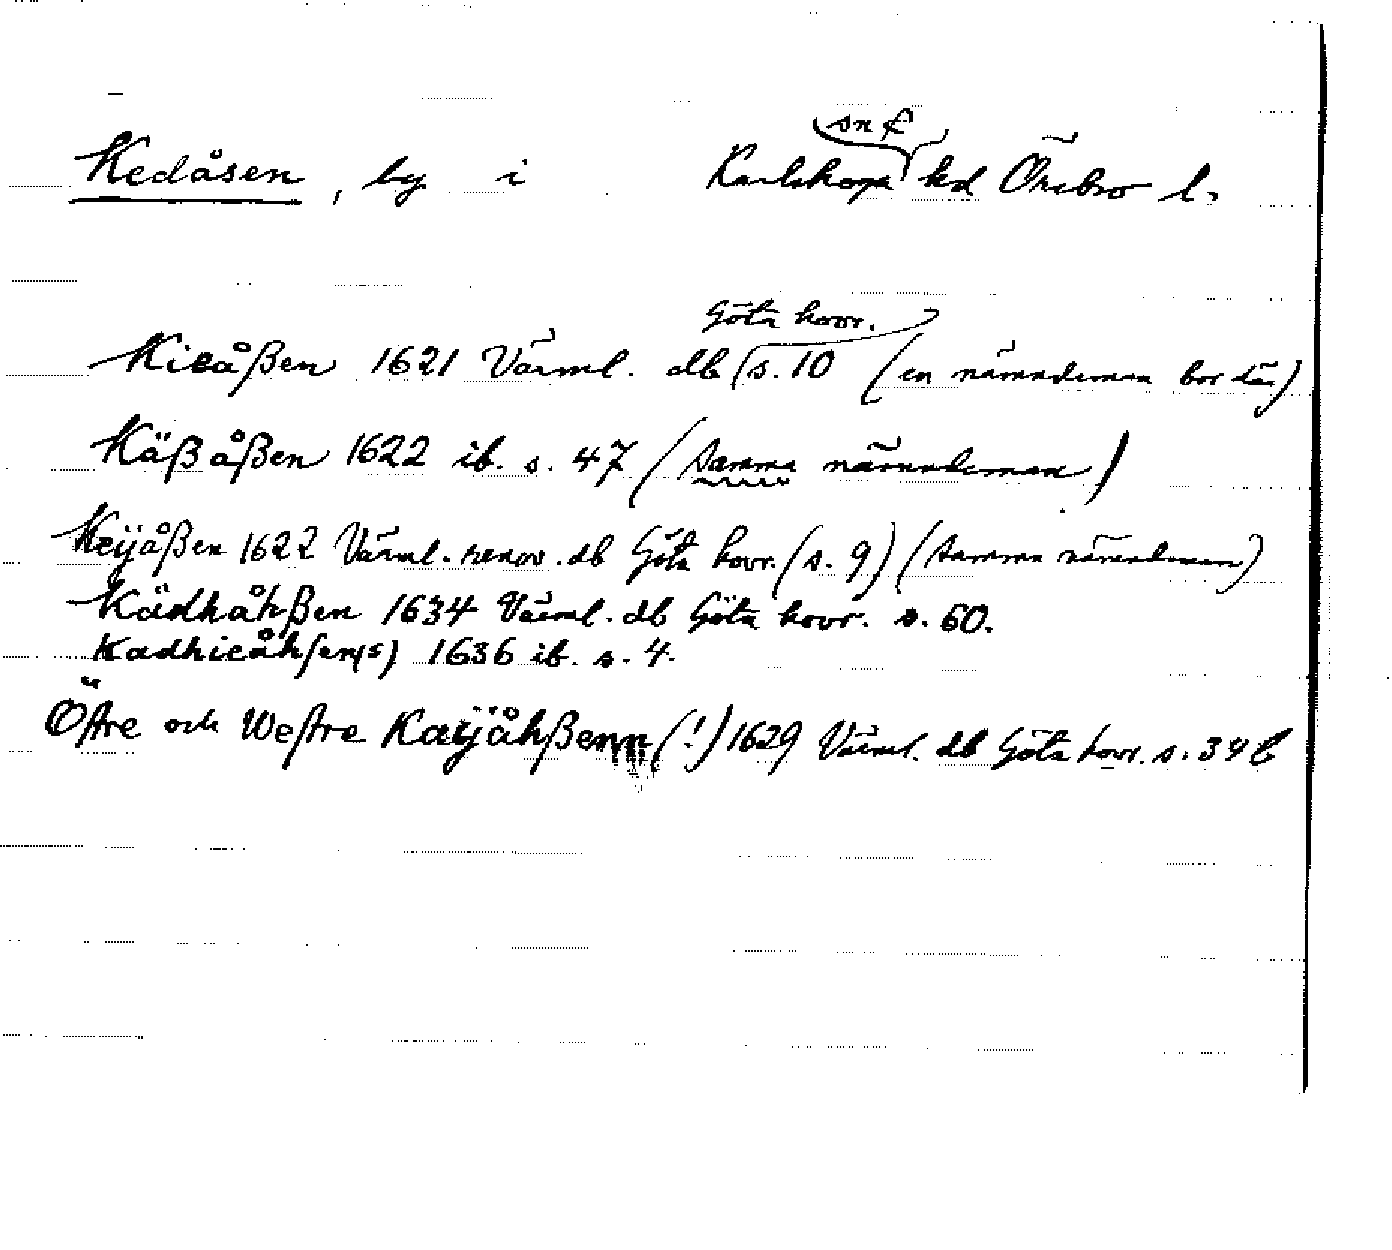 Kedåsen, by i Karlskoga sn o hd Örebro l.
Kieåßen 1621 Värml. db Göta hovr. (s. 10 (en nämndeman bor där)
Käßåßen 1622 ib. s. 47 (samma nämndeman)
Keijåßen 1622 Värml. renov. db Göta hovr. (s. 9) (samma nämndeman)
Kädhåhßen 1634 Värml. db Göta hovr. s. 60.
Kadhieåhsen(s) 1636 ib. s. 4.
Östre och Westre Kaijåhßenn (!) 1629 Värml. db Göta hovr. s. 34 b